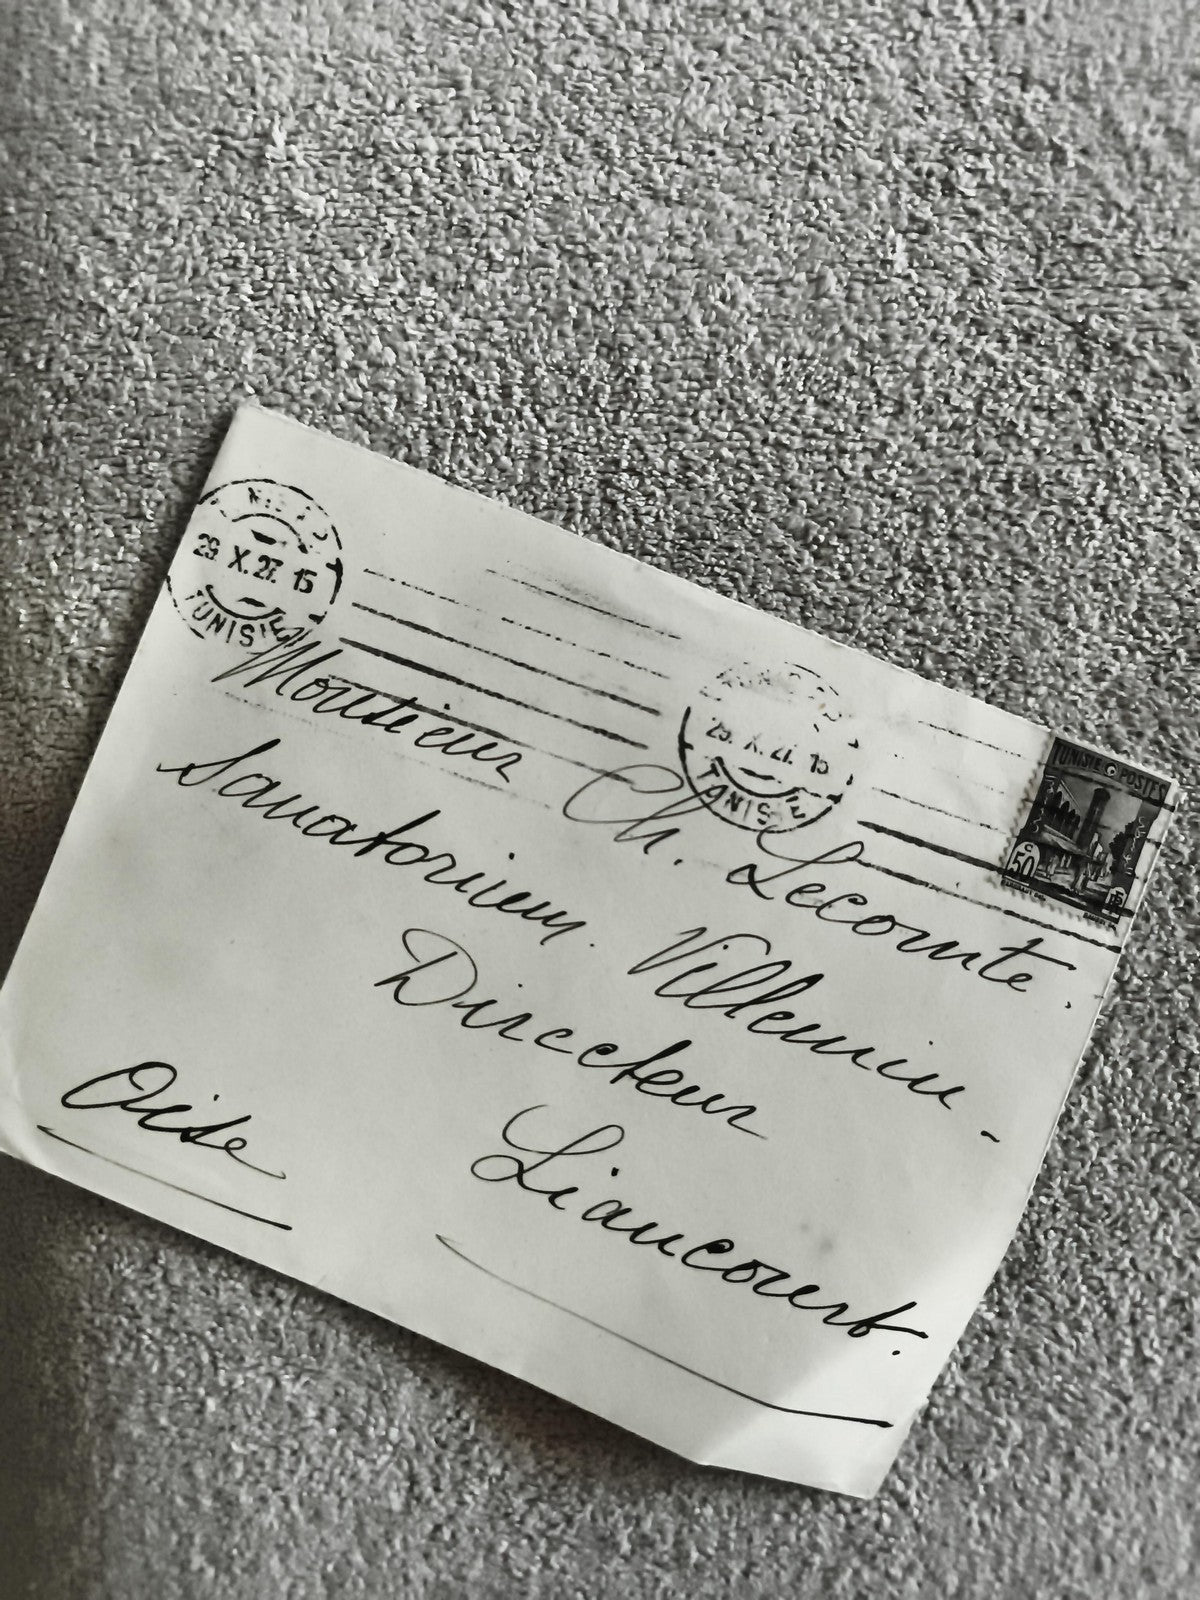 29 X.27. 15
TUNISIE
TUNIS
29. X.27. 15
TUNISIE
TUNISIE POSTES
50 c
Monsieur Ch. Lecomte.
Sanatorium. Villemin -
Directeur
Liancourt.
Oise